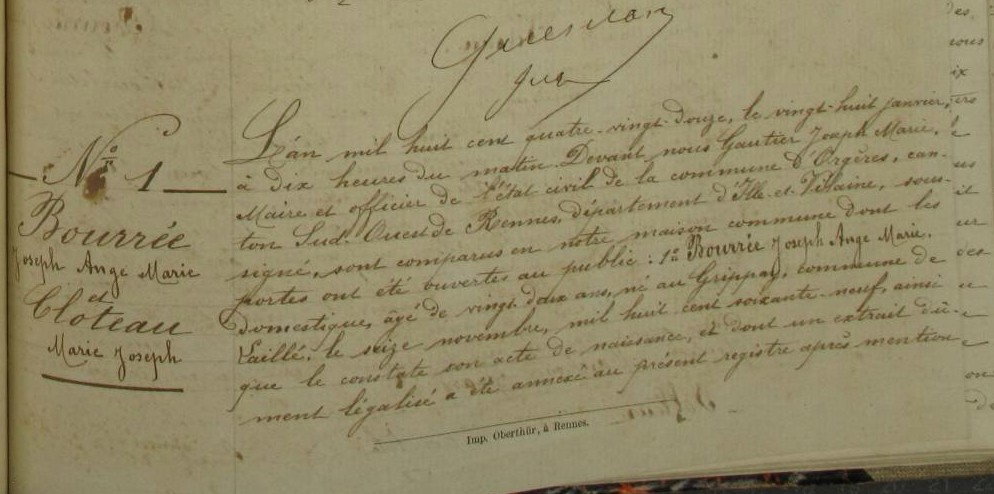 N° 1
Bourrée
Joseph Ange Marie
et
Cloteau
Marie Joseph
L'an mil huit cent quatre-vingt-douze, le vingt-huit janvier,
à dix heures du matin Devant nous Gautier Joseph Marie,
Maire et officier de l'état civil de la commune d'Orgères, can-
ton Sud-Ouest de Rennes, département d'Ille-et-Vilaine, sous-
signé, sont comparus en notre maison commune dont les
portes ont été ouvertes au public : 1° Bourrée Joseph Ange Marie,
domestique, âgé de vingt-deux ans, né au Grippay, commune de
Laillé, le seize novembre, mil huit cent soixante-neuf, ainsi
que le constate son acte de naissance, et dont un extrait dû-
ment légalisé a été annexé au présent registre après mention
Imp. Oberthür, à Rennes.